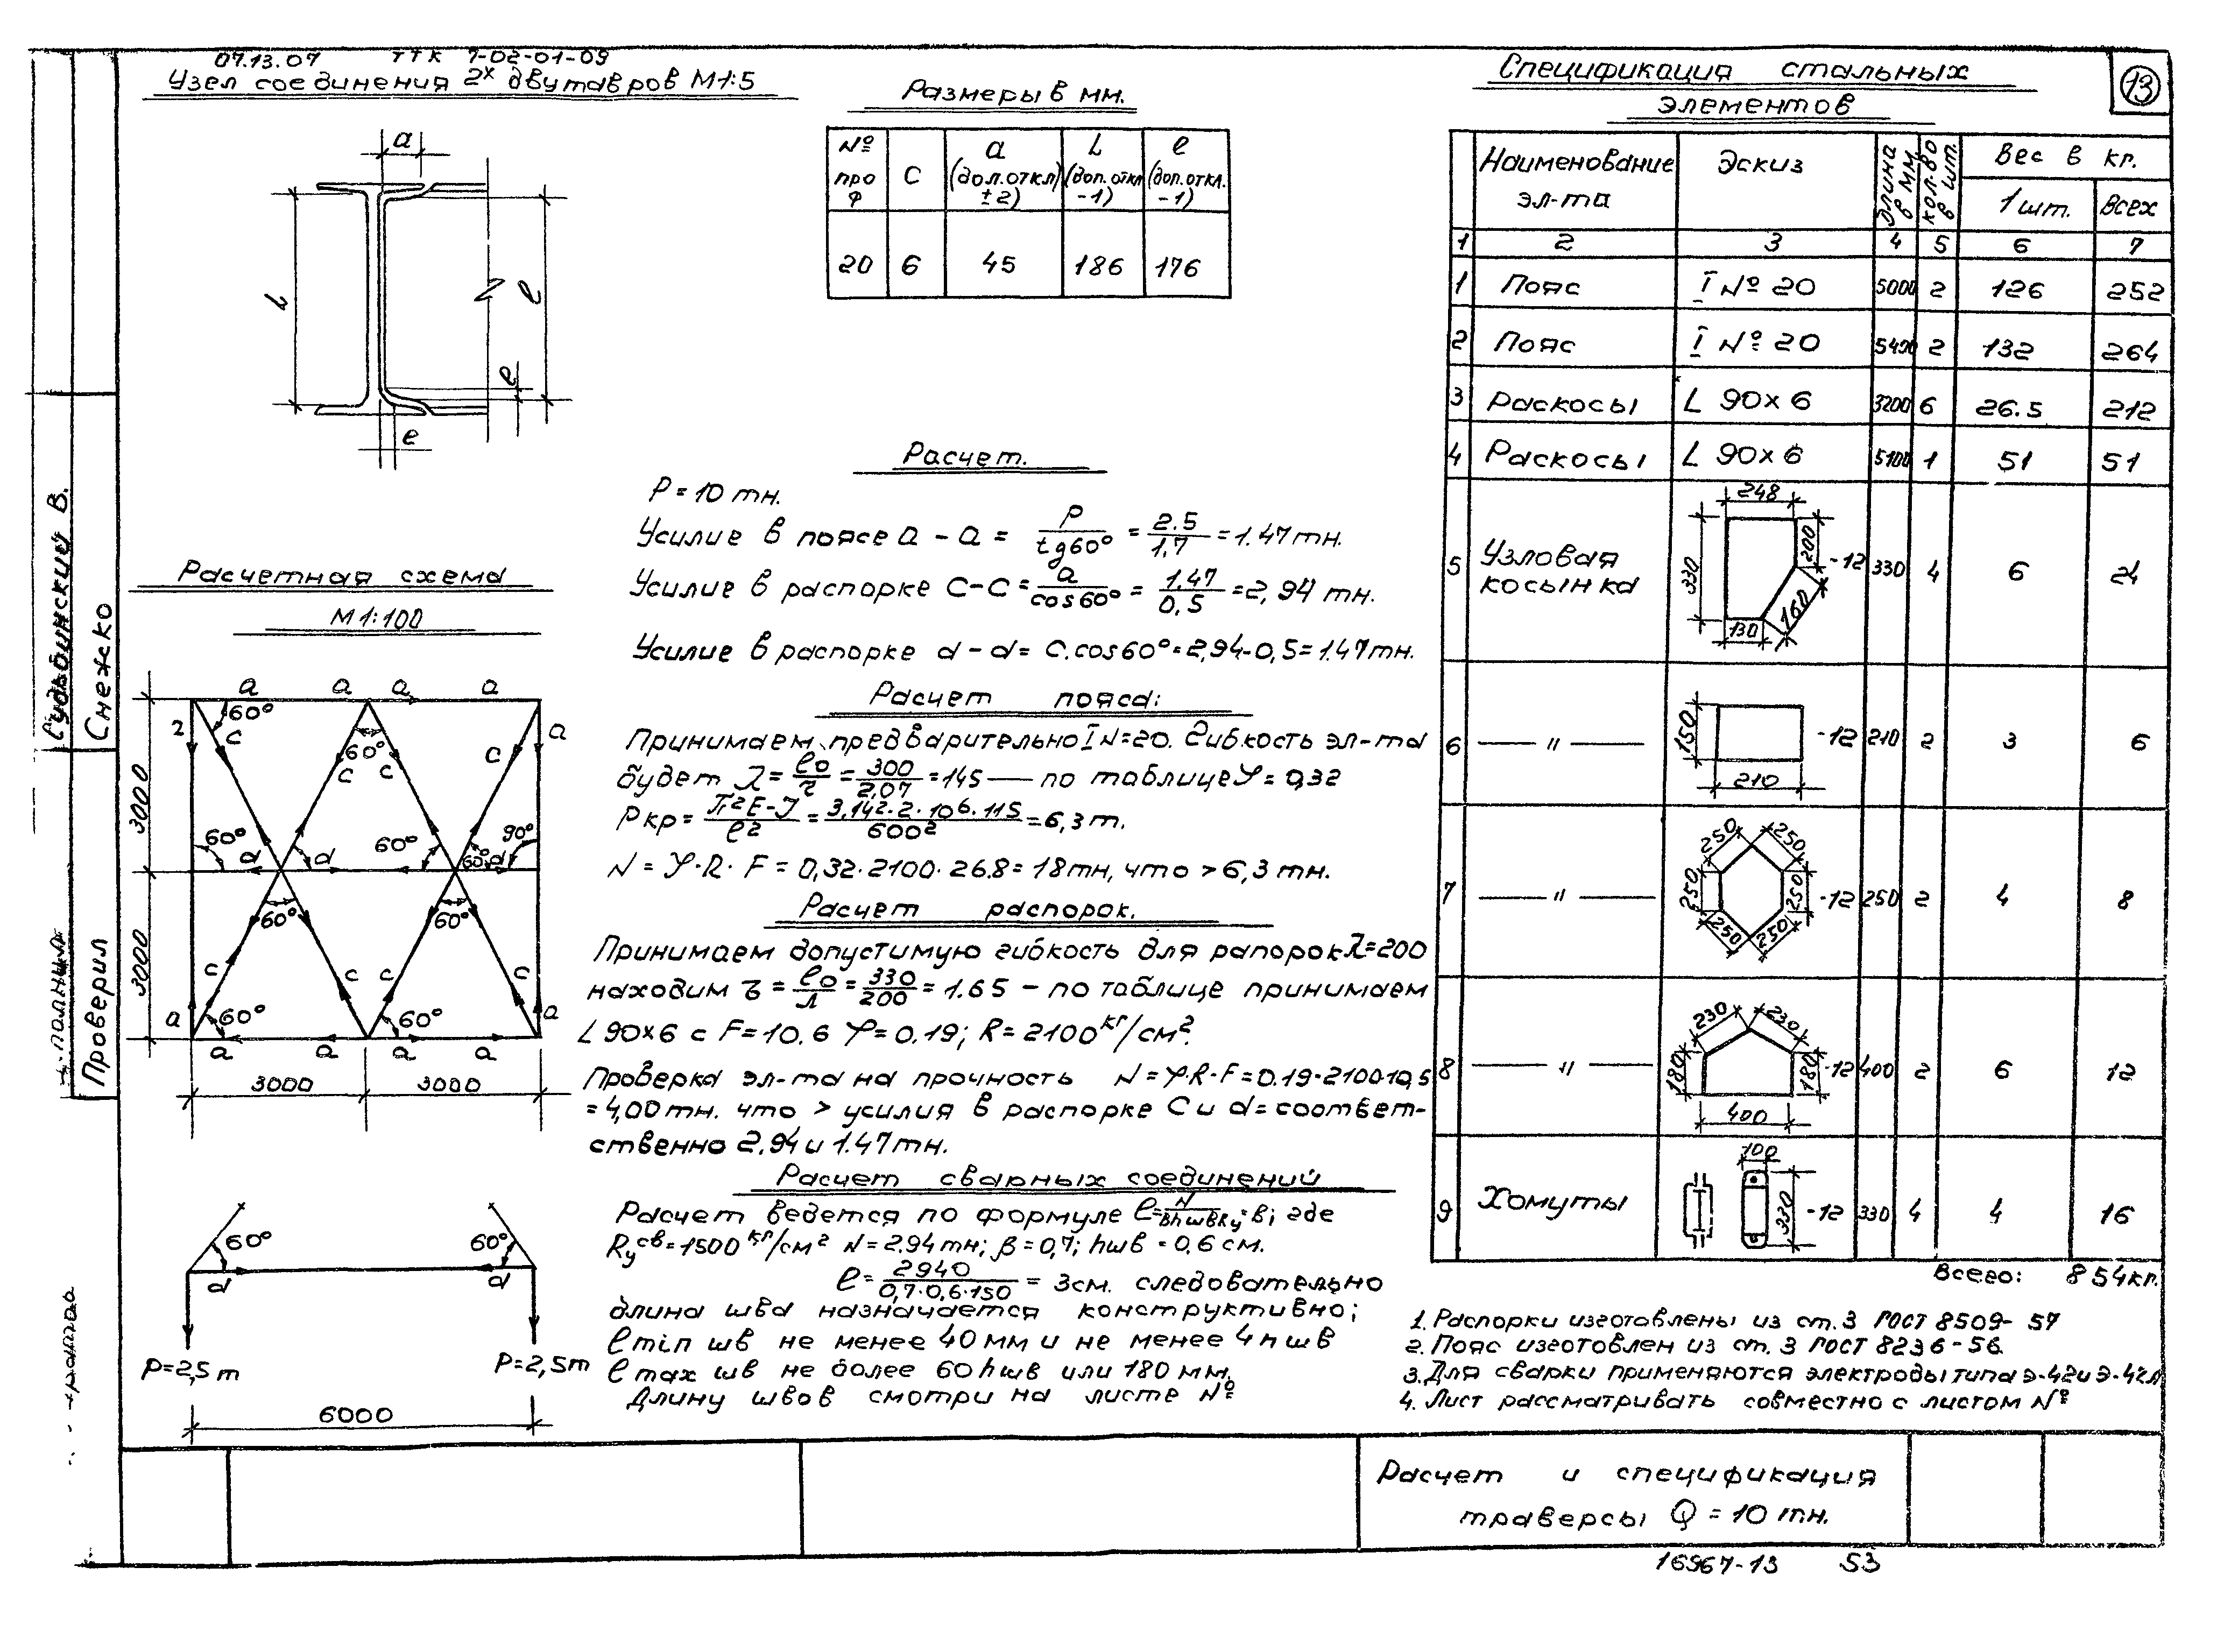 07.13.07 ТТК 7-02-01-09
Узел соединения 2х двутавров М1:5
a
h
e
e
e
Размеры в мм.
№ проф
С
a (доп.откл ±2)
h (доп.откл -1)
e (доп.откл. -1)
20 6 45 186 176
Расчетная схема
М 1:100
a a a a
60° 60°
2 c c c c a
3000
60° d d 60° 60° d 90°
60° 60°
3000
c c c c
a 60° 60° a
a a a a
3000 3000
60° 60°
d d
P=2,5т P=2,5т
6000
Расчет.
P = 10 тн.
Усилие в поясе a – a = P/tg60° = 2.5/1,7 = 1.47 тн.
Усилие в распорке С–С = a/cos60° = 1.47/0,5 = 2,94 тн.
Усилие в распорке d – d = C.cos60° = 2,94·0,5 = 1.47тн.
Расчет пояса:
Принимаем предварительно I N=20. Гибкость эл-та
будет λ = ℓo/τ = 300/2,07 = 145 — по таблице φ = 0,32
Pкр = П²E-J/ℓ² = 3,142·2·10⁶·115/600² = 6,3 т.
N = φ·R·F = 0,32·2100·26.8 = 18тн, что > 6,3 тн.
Расчет распорок.
Принимаем допустимую гибкость для рапорок λ=200
находим τ = ℓo/λ = 330/200 = 1.65 – по таблице принимаем
L 90×6 с F=10.6 φ=0.19; R=2100 кг/см².
Проверка эл-та на прочность N=φ·R·F=0.19·2100·10,5
= 4,00 тн. что > усилия в распорке С и d = соответ-
ственно 2.94 и 1.47 тн.
Расчет сварных соединений
Расчет ведется по формуле ℓ=N/вhшвRу=в; где
Rусв=1500 кг/см² N=2.94тн; β=0,7; hшв=0,6 см.
ℓ = 2940/0,7·0,6·150 = 3см. следовательно
длина шва назначается конструктивно;
ℓmin шв не менее 40 мм и не менее 4 h шв
ℓmax шв не более 60 hшв или 180 мм.
Длину швов смотри на листе №
Спецификация стальных
элементов
13
Наименование эл-та
Эскиз
Длина в мм.
кол-во в шт.
Вес в кг.
1 шт. Всех
1 2 3 4 5 6 7
1 Пояс I № 20 5000 2 126 252
2 Пояс I № 20 5400 2 132 264
3 Раскосы L 90×6 3200 6 26.5 212
4 Раскосы L 90×6 5100 1 51 51
248
330 200 160
130
5 Узловая косынка -12 330 4 6 24
150
210
6 — " — -12 210 2 3 6
250 250
250 250
250 250
7 — " — -12 250 2 4 8
230 230
180 180
400
8 — " — -12 400 2 6 12
100
330
9 Хомуты -12 330 4 4 16
Всего: 854кг.
1. Распорки изготовлены из ст. 3 ГОСТ 8509-57
2. Пояс изготовлен из ст. 3 ГОСТ 8236-56.
3. Для сварки применяются электроды типа Э-42 и Э-42А
4. Лист рассматривать совместно с листом №
Судьбинский В.
Снежко
Проверил
Расчет и спецификация
траверсы Q = 10 тн.
16967-13 53